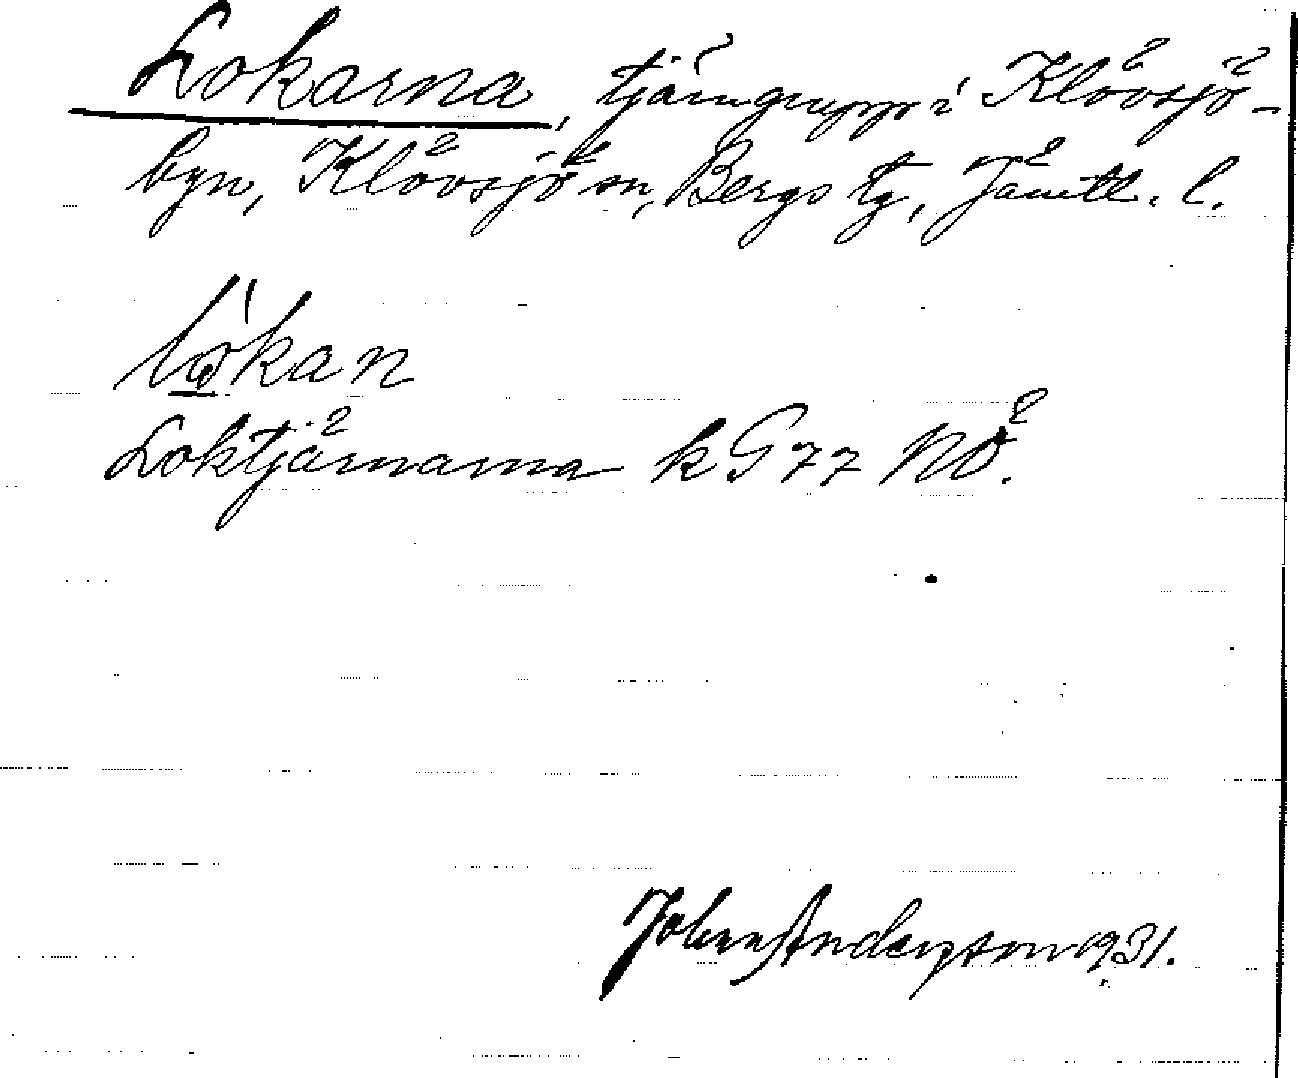 Lokarna, tjärngrupp i Klövsjö-
byn, Klövsjö sn, Bergs tg, Jämtl. l.
Loktjärnarna k G 77 NÖ.
John Anderson 1931.